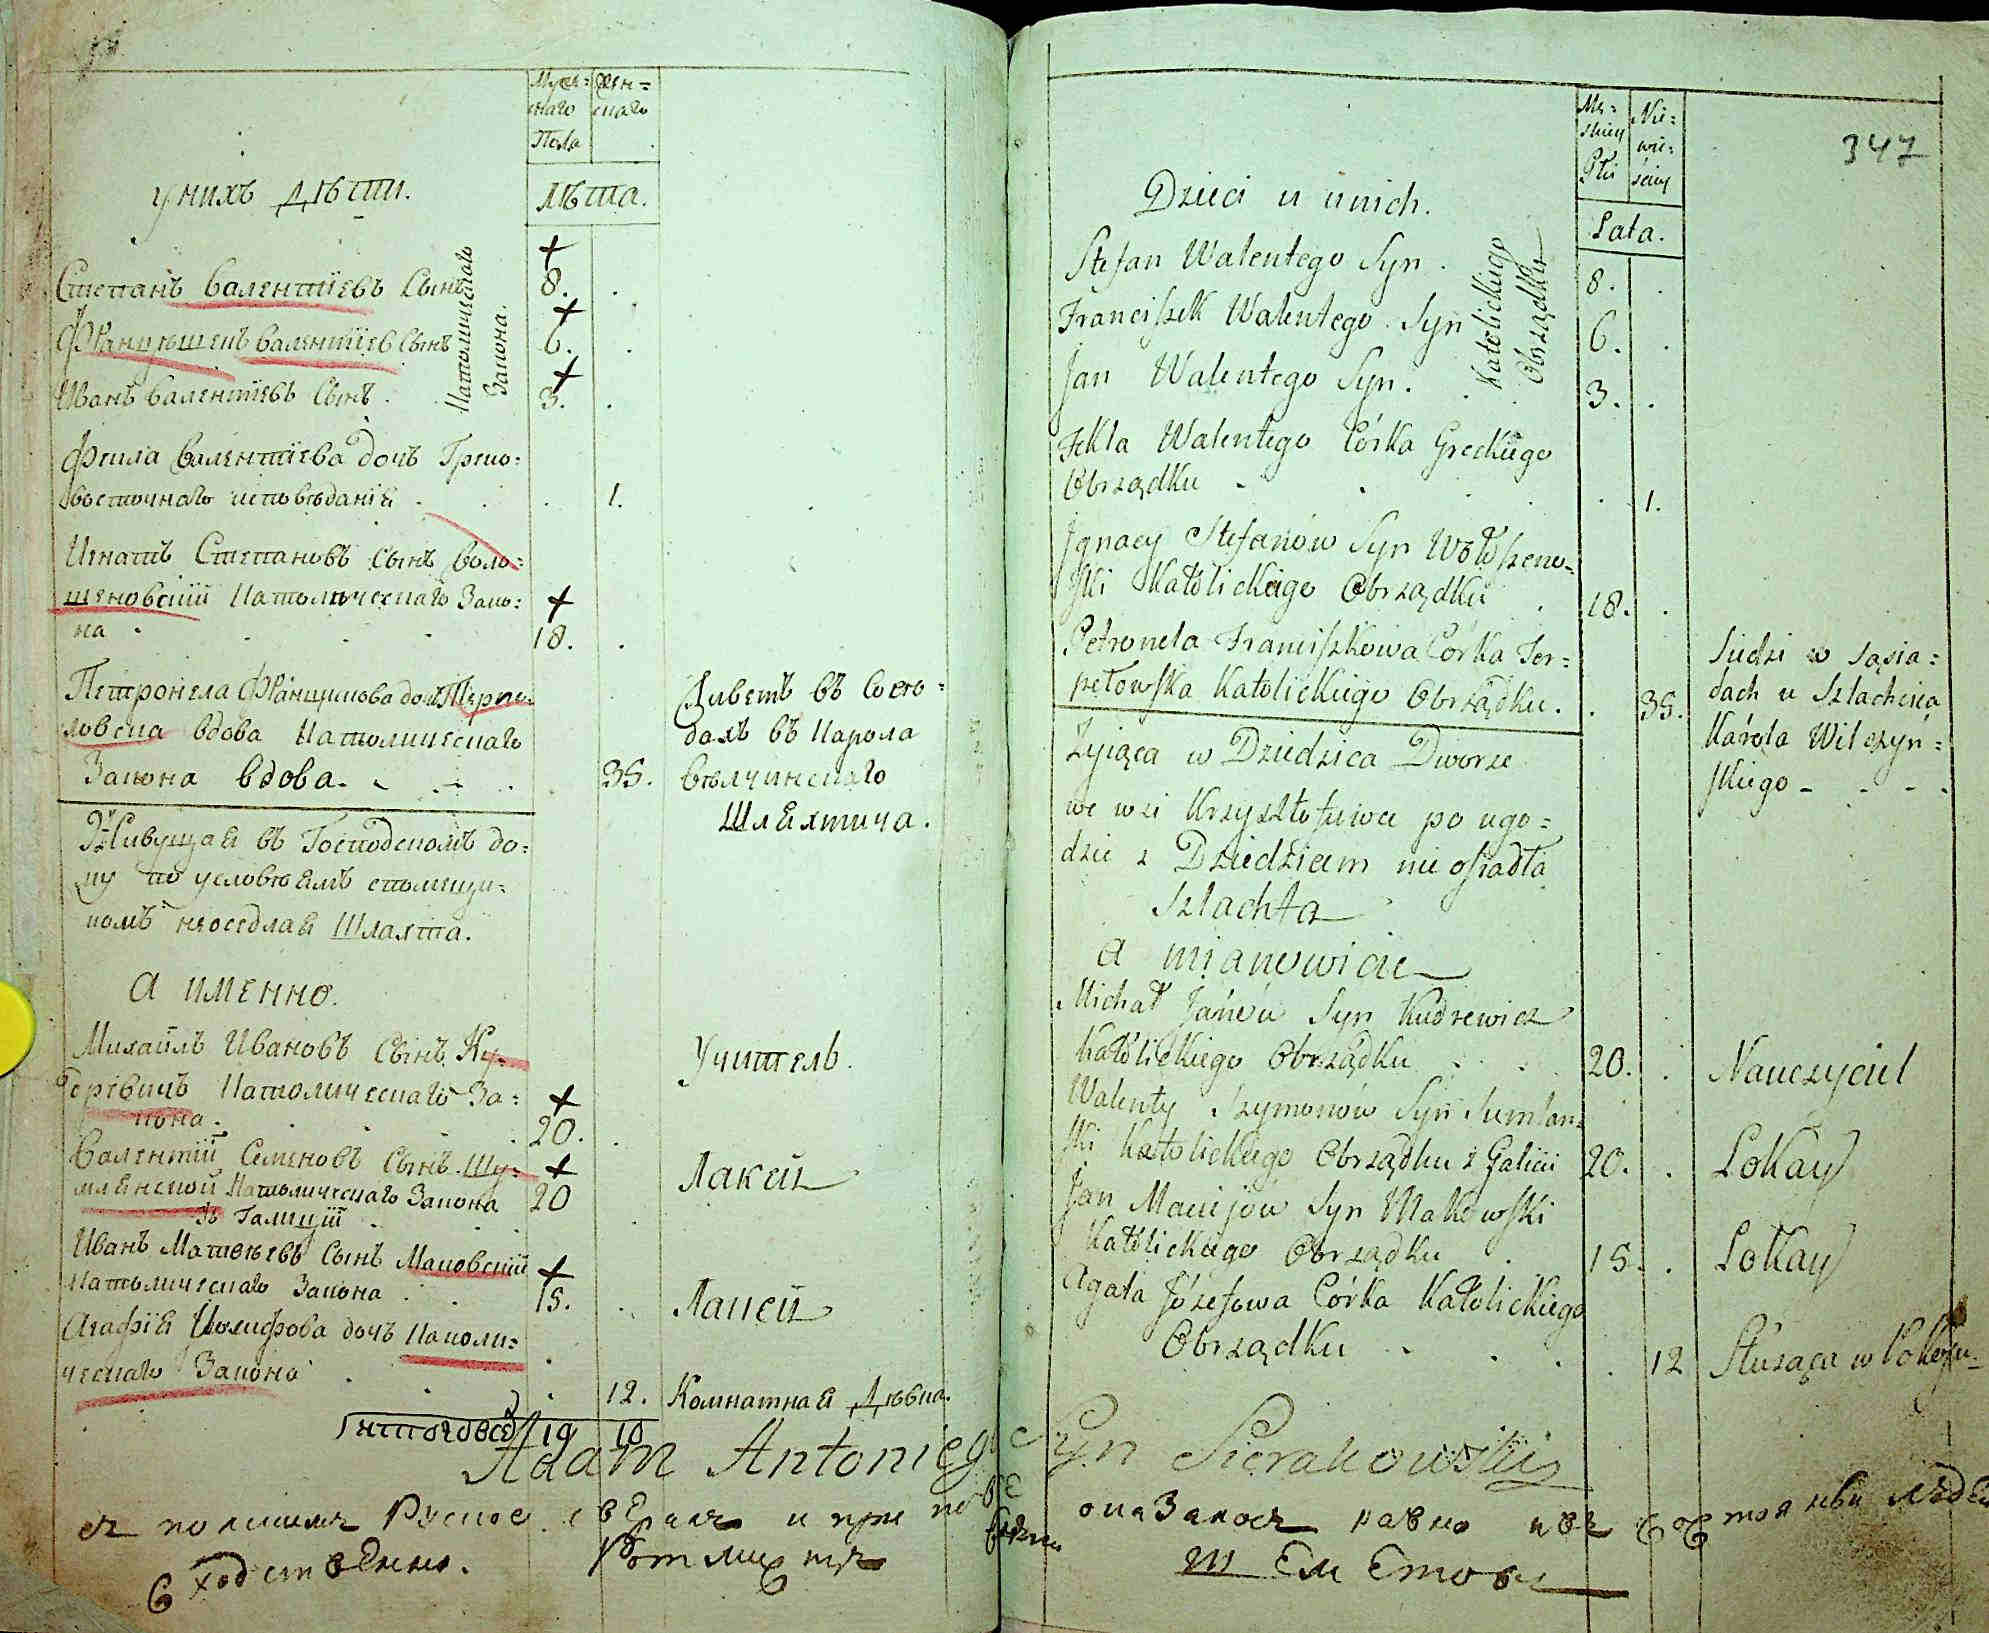 Мужескаго Пола
Женскаго
Лѣта.
У нихъ Дѣти.
Степанъ Валентїевъ Сынъ 8.
Францишекъ Валентїев Сынъ 6.
Иванъ Валентїевъ Сынъ 3.
Католическаго
Закона.
Фекла Валентїева дочъ Греко=
восточнаго исповѣданїя 1.
Игнатъ Степановъ Сынъ Воло=
шеновскїй Католическаго Зако=
на 18.
Петронела Францишкова доч Терпе=
ловска вдова Католическаго
Закона вдова. 35.
Живетъ въ Сосѣ=
дахъ въ Карола
Вѣлчинскаго
Шляхтича.
Живущая въ Господскомъ до=
му по условїямъ спомѣщи=
комъ неоседлая Шляхта.
а именно.
Михайлъ Ивановъ Сынъ Ку=
древичъ Католическаго За=
кона. 20. Учитель.
Валентїй Семеновъ Сынъ Шу=
млянской Католическаго Закона 20 Лакей
Зъ Галицїї
Иванъ Матвѣевъ Сынъ Маковскїй
Католическаго Закона 15. Лакей
Агафїя Иосифова дочъ Католи=
ческаго Закона 12. Комнатная Дѣвка.
итого все 19 10
347
Męskiey Płci
Niewieściey
Lata.
Dzieci u nich.
Stefan Walentego Syn 8.
Franciszek Walentego Syn 6.
Jan Walentego Syn. 3.
Katolickiego
Obrządku
Tekla Walentego Córka Greckiego
Obrządku 1.
Jgnacy Stefanów Syn Wołoszeno=
ski Katolickiego Obrządku 18.
Petronela Franciszkowa Córka Ter=
pełowska Katolickiego Obrządku. 35.
Siedzi w sąsia=
dach u Szlachcica
Karola Wilczyń=
skiego
Żyiąca w Dziedzica Dworze
we wsi Krzysztofuwce po ugo=
dzie z Dziedzicem nie osiadła
Szlachta
a mianowicie
Michał Janów Syn Kudrewicz
Katolickiego Obrządku 20. Nauczyciel
Walenty Szymonów Syn Sumlan=
ski Katolickiego Obrządku z Galicii 20. Lokay
Jan Maciejów Syn Makowski
Katolickiego Obrządku 15. Lokay
Agata Józefowa Córka Katolickiego
Obrządku 12 Służąca w Pokoju
Adam Antoniego Syn Sierakowski
оказалось равно
сходственно. Ротмистръ